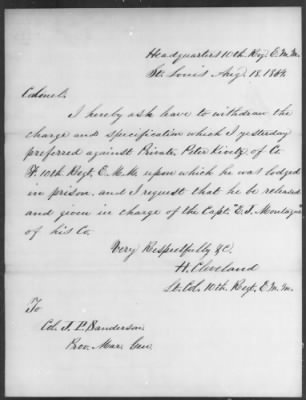 Headquarters 10th Reg. E.M.M.
St. Louis Aug. 18. 1864.
Colonel.
I hereby ask have to withdraw the
charge and specification which I yesterday
preferred against Private Peter of Co
10th Regt. E.M.M. upon which he was lodged
in prison. and I request that he be released
and given in charge of the Capt. E. J. Montague
of his Co.
Very Respectfully &C.
H. Cleveland
Lt. Col. 10th Regt. E. M. M.
To
Col. J. P. Sanderson
Pro. Mar. Gen.